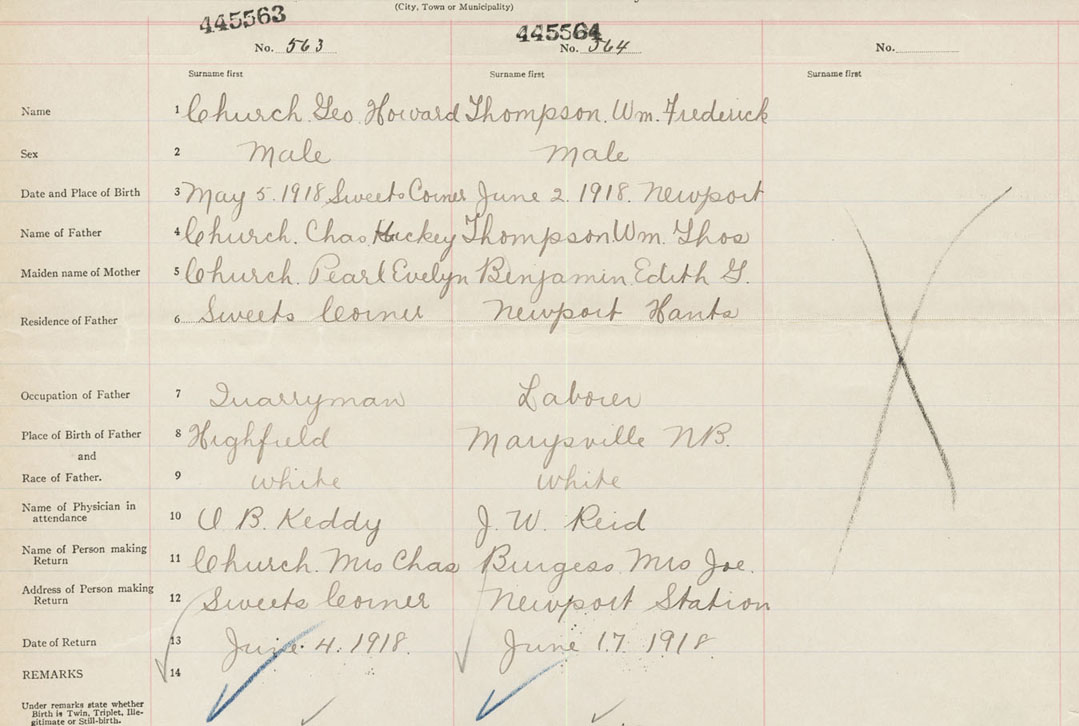 (City, Town or Municipality)
445563 445564
No. 563 No. 564 No.
Surname first Surname first Surname first
Name 1 Church. Geo. Howard Thompson. Wm. Frederick
Sex 2 Male Male
Date and Place of Birth 3 May 5. 1918, Sweets Corner June 2. 1918. Newport
Name of Father 4 Church. Chas. Huckey Thompson. Wm. Thos
Maiden name of Mother 5 Church. Pearl Evelyn Benjamin. Edith G.
Residence of Father 6 Sweets Corner Newport Hants
Occupation of Father 7 Quarryman Laborer
Place of Birth of Father 8 Highfield Marysville N.B.
and
Race of Father. 9 white white
Name of Physician in
attendance 10 O B. Keddy J. W. Reid
Name of Person making
Return 11 Church. Mrs Chas Burgess. Mrs Joe.
Address of Person making
Return 12 Sweets Corner Newport Station
Date of Return 13 June. 4. 1918. June 17. 1918
REMARKS 14
Under remarks state whether
Birth is Twin, Triplet, Ille-
gitimate or Still-birth.